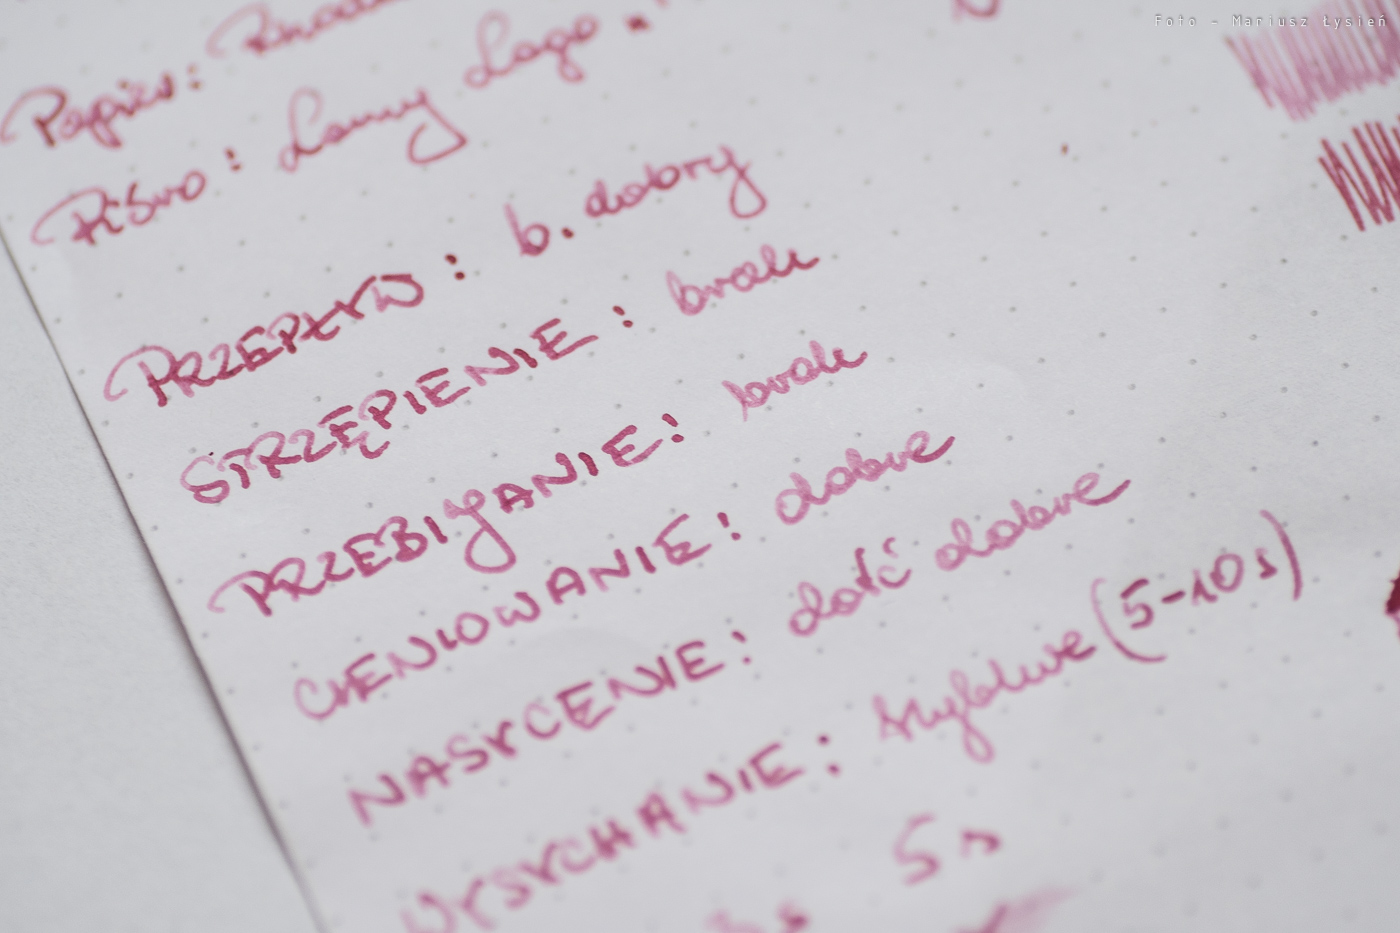 Foto - Mariusz Łysień
Papier:
Pióro: Lamy Logo "
PRZEPŁYW: b. dobry
STRZĘPIENIE: brak
PRZEBIJANIE: brak
CIENIOWANIE: dobre
NASYCENIE: dość dobre
WYSYCHANIE: szybkie (5-10s)
5s